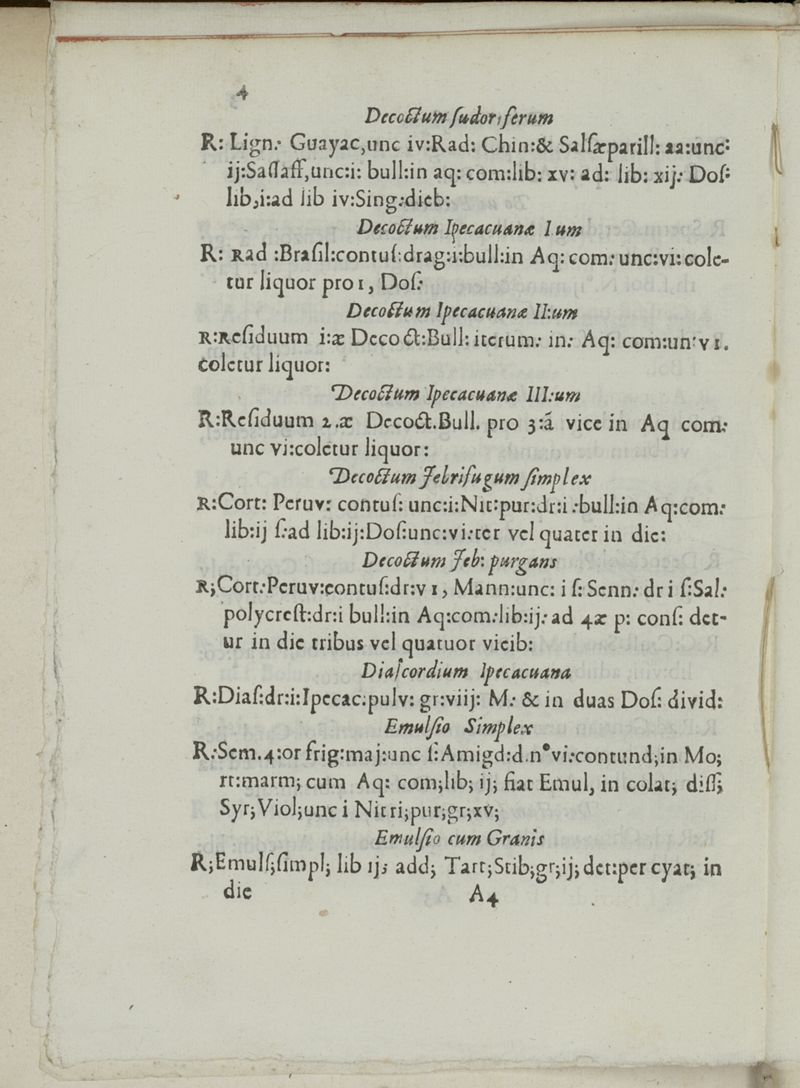 4
Decoctum sudoriferum
R: Lign: Guayac,unc iv:Rad: Chin:& Salsæparill: aa:unc:
ij:Sassaff,unc:i: bull:in aq: com:lib: xv: ad: lib: xij: Dos:
lib,i:ad lib iv:Sing:dieb:
Decoctum Ipecacuanæ 1um
R: Rad :Brasil:contus:drag:i:bull:in Aq: com: unc:vi: cole-
tur liquor pro 1, Dos:
Decoctum Ipecacuanæ II:um
R:Residuum i:æ Decoct:Bull: iterum: in: Aq: com:un:v1.
coletur liquor:
Decoctum Ipecacuanæ III:um
R:Residuum 2.æ Decoct.Bull. pro 3:á vice in Aq com:
unc vi:coletur liquor:
Decoctum Febrifugum simplex
R:Cort: Peruv: contus: unc:i:Nit:pur:dr:i :bull:in Aq:com:
lib:ij s:ad lib:ij:Dos:unc:vi:ter vel quater in die:
Decoctum Feb: purgans
R;Cort:Peruv:contus:dr:v1, Mann:unc: i s: Senn: dr i s:Sal:
polycrest:dr:i bull:in Aq:com:lib:ij: ad 4æ p: cons: det-
ur in die tribus vel quatuor vicib:
Diascordium Ipecacuana
R:Dias:dr:i:Ipecac:pulv: gr:viij: M: & in duas Dos: divid:
Emulsio Simplex
R:Sem.4:or frig:maj:unc s:Amigd:d.n°vi:contund;in Mo;
rt:marm; cum Aq: com;lib; ij; fiat Emul, in colat; diss;
Syr;Viol;unc i Nitri;pur;gr;xv;
Emulsio cum Granis
R;Emuls;simpl; lib ij; add; Tart;Stib;gr;ij; det:per cyat; in
die A4